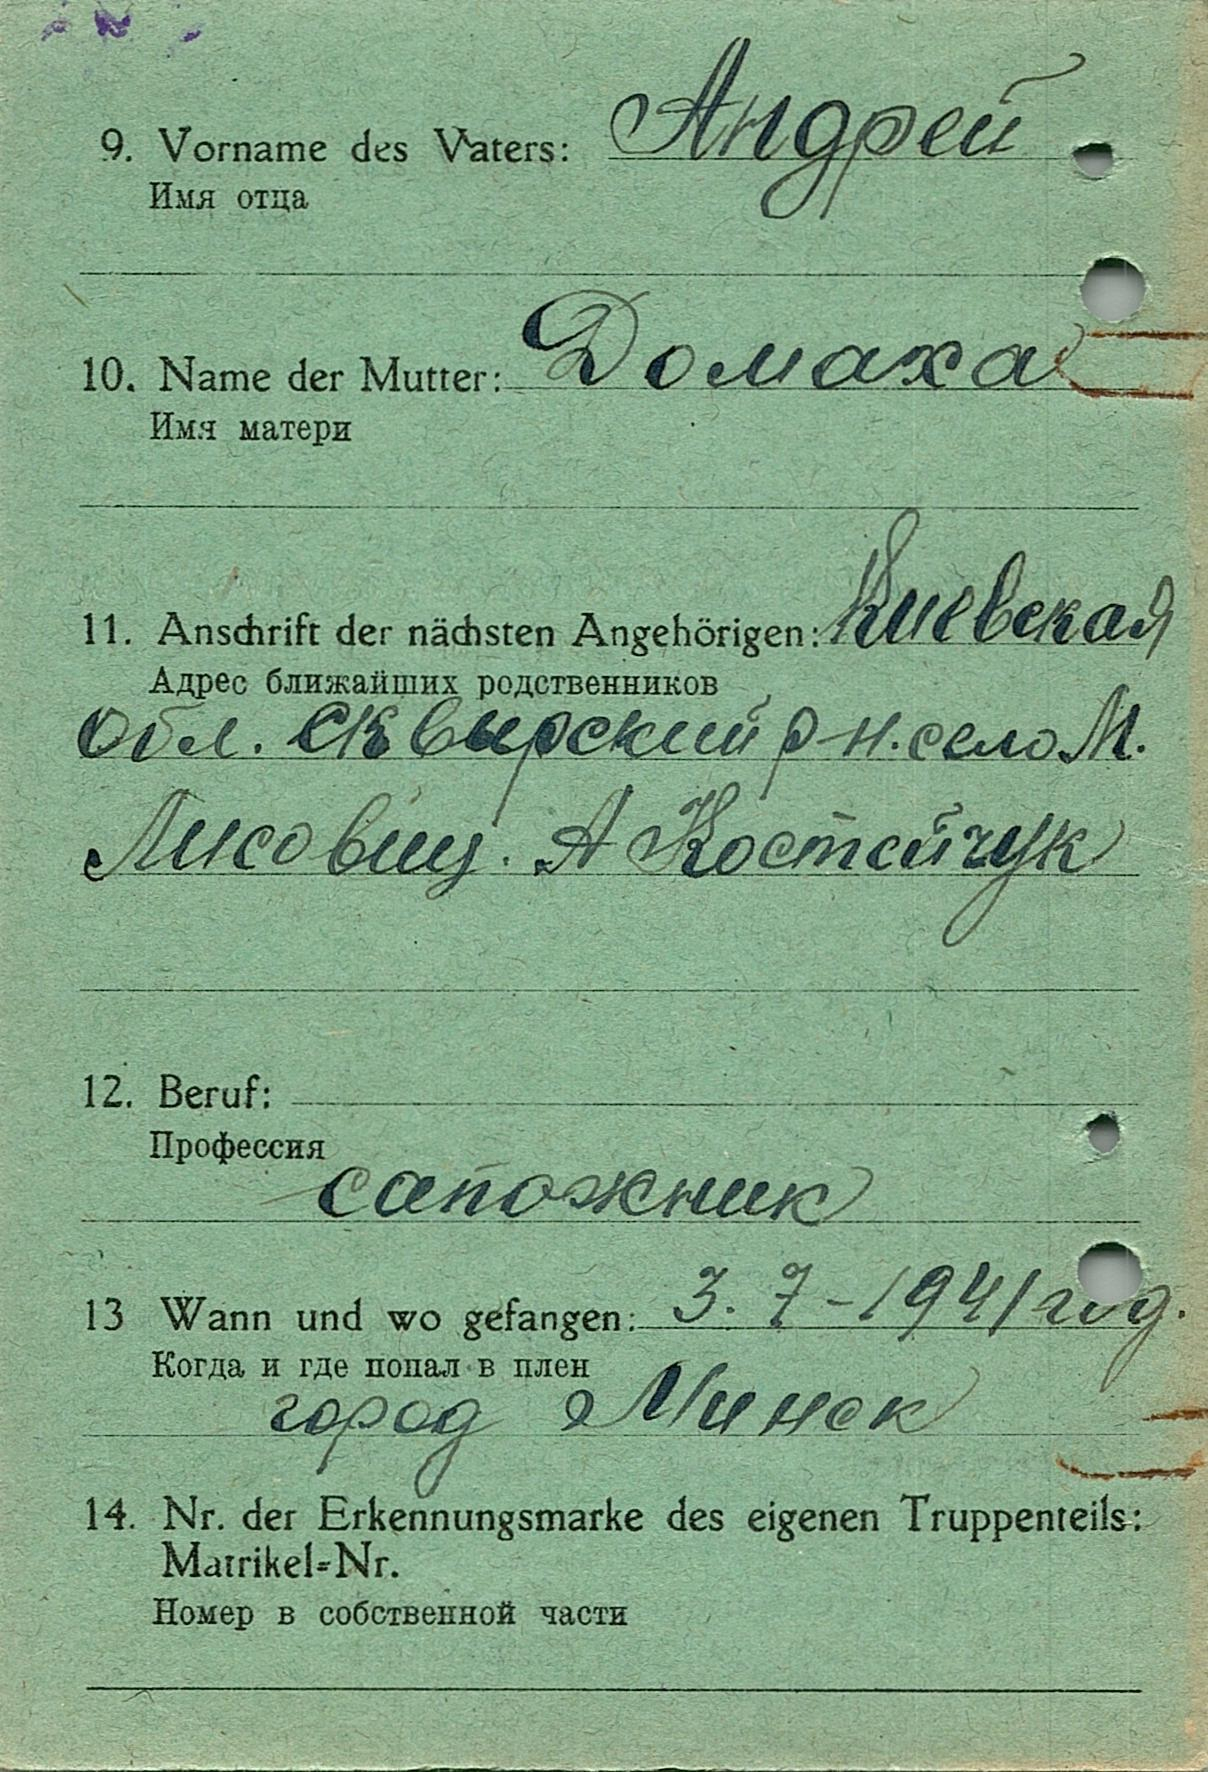 9. Vorname des Vaters: Андрей
Имя отца
10. Name der Mutter: Домаха
Имя матери
11. Anschrift der nächsten Angehörigen: Киевская
Адрес ближайших родственников
обл. Сквырский р-н. село М.
Лисовиц. А Костейчук
12. Beruf:
Профессия
сапожник
13 Wann und wo gefangen: 3. 7-1941 год.
Когда и где попал в плен
город Минск
14. Nr. der Erkennungsmarke des eigenen Truppenteils:
Matrikel=Nr.
Номер в собственной части